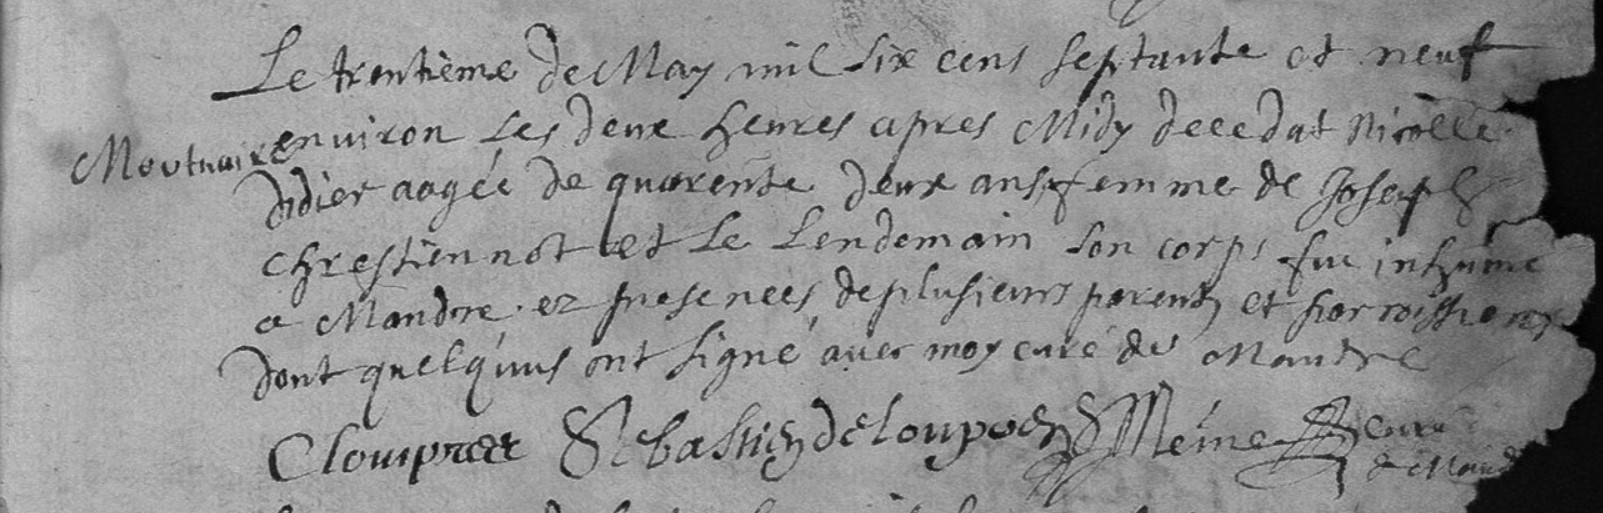 Le trentième de May mil six cens septante et neuf
Mortuaire
environ les deux heures apres Midy decedat Nicolle
didier aagée de quarente deux ans femme de Joseph
chrestiennot et le lendemain son corps fut inhumé
a Mandre ez presences de plusieurs parents et parroissiens
dont quelqu'uns ont signé avec moy curé de Mandre
Sebastien de loupoey Méine curé
de Mand